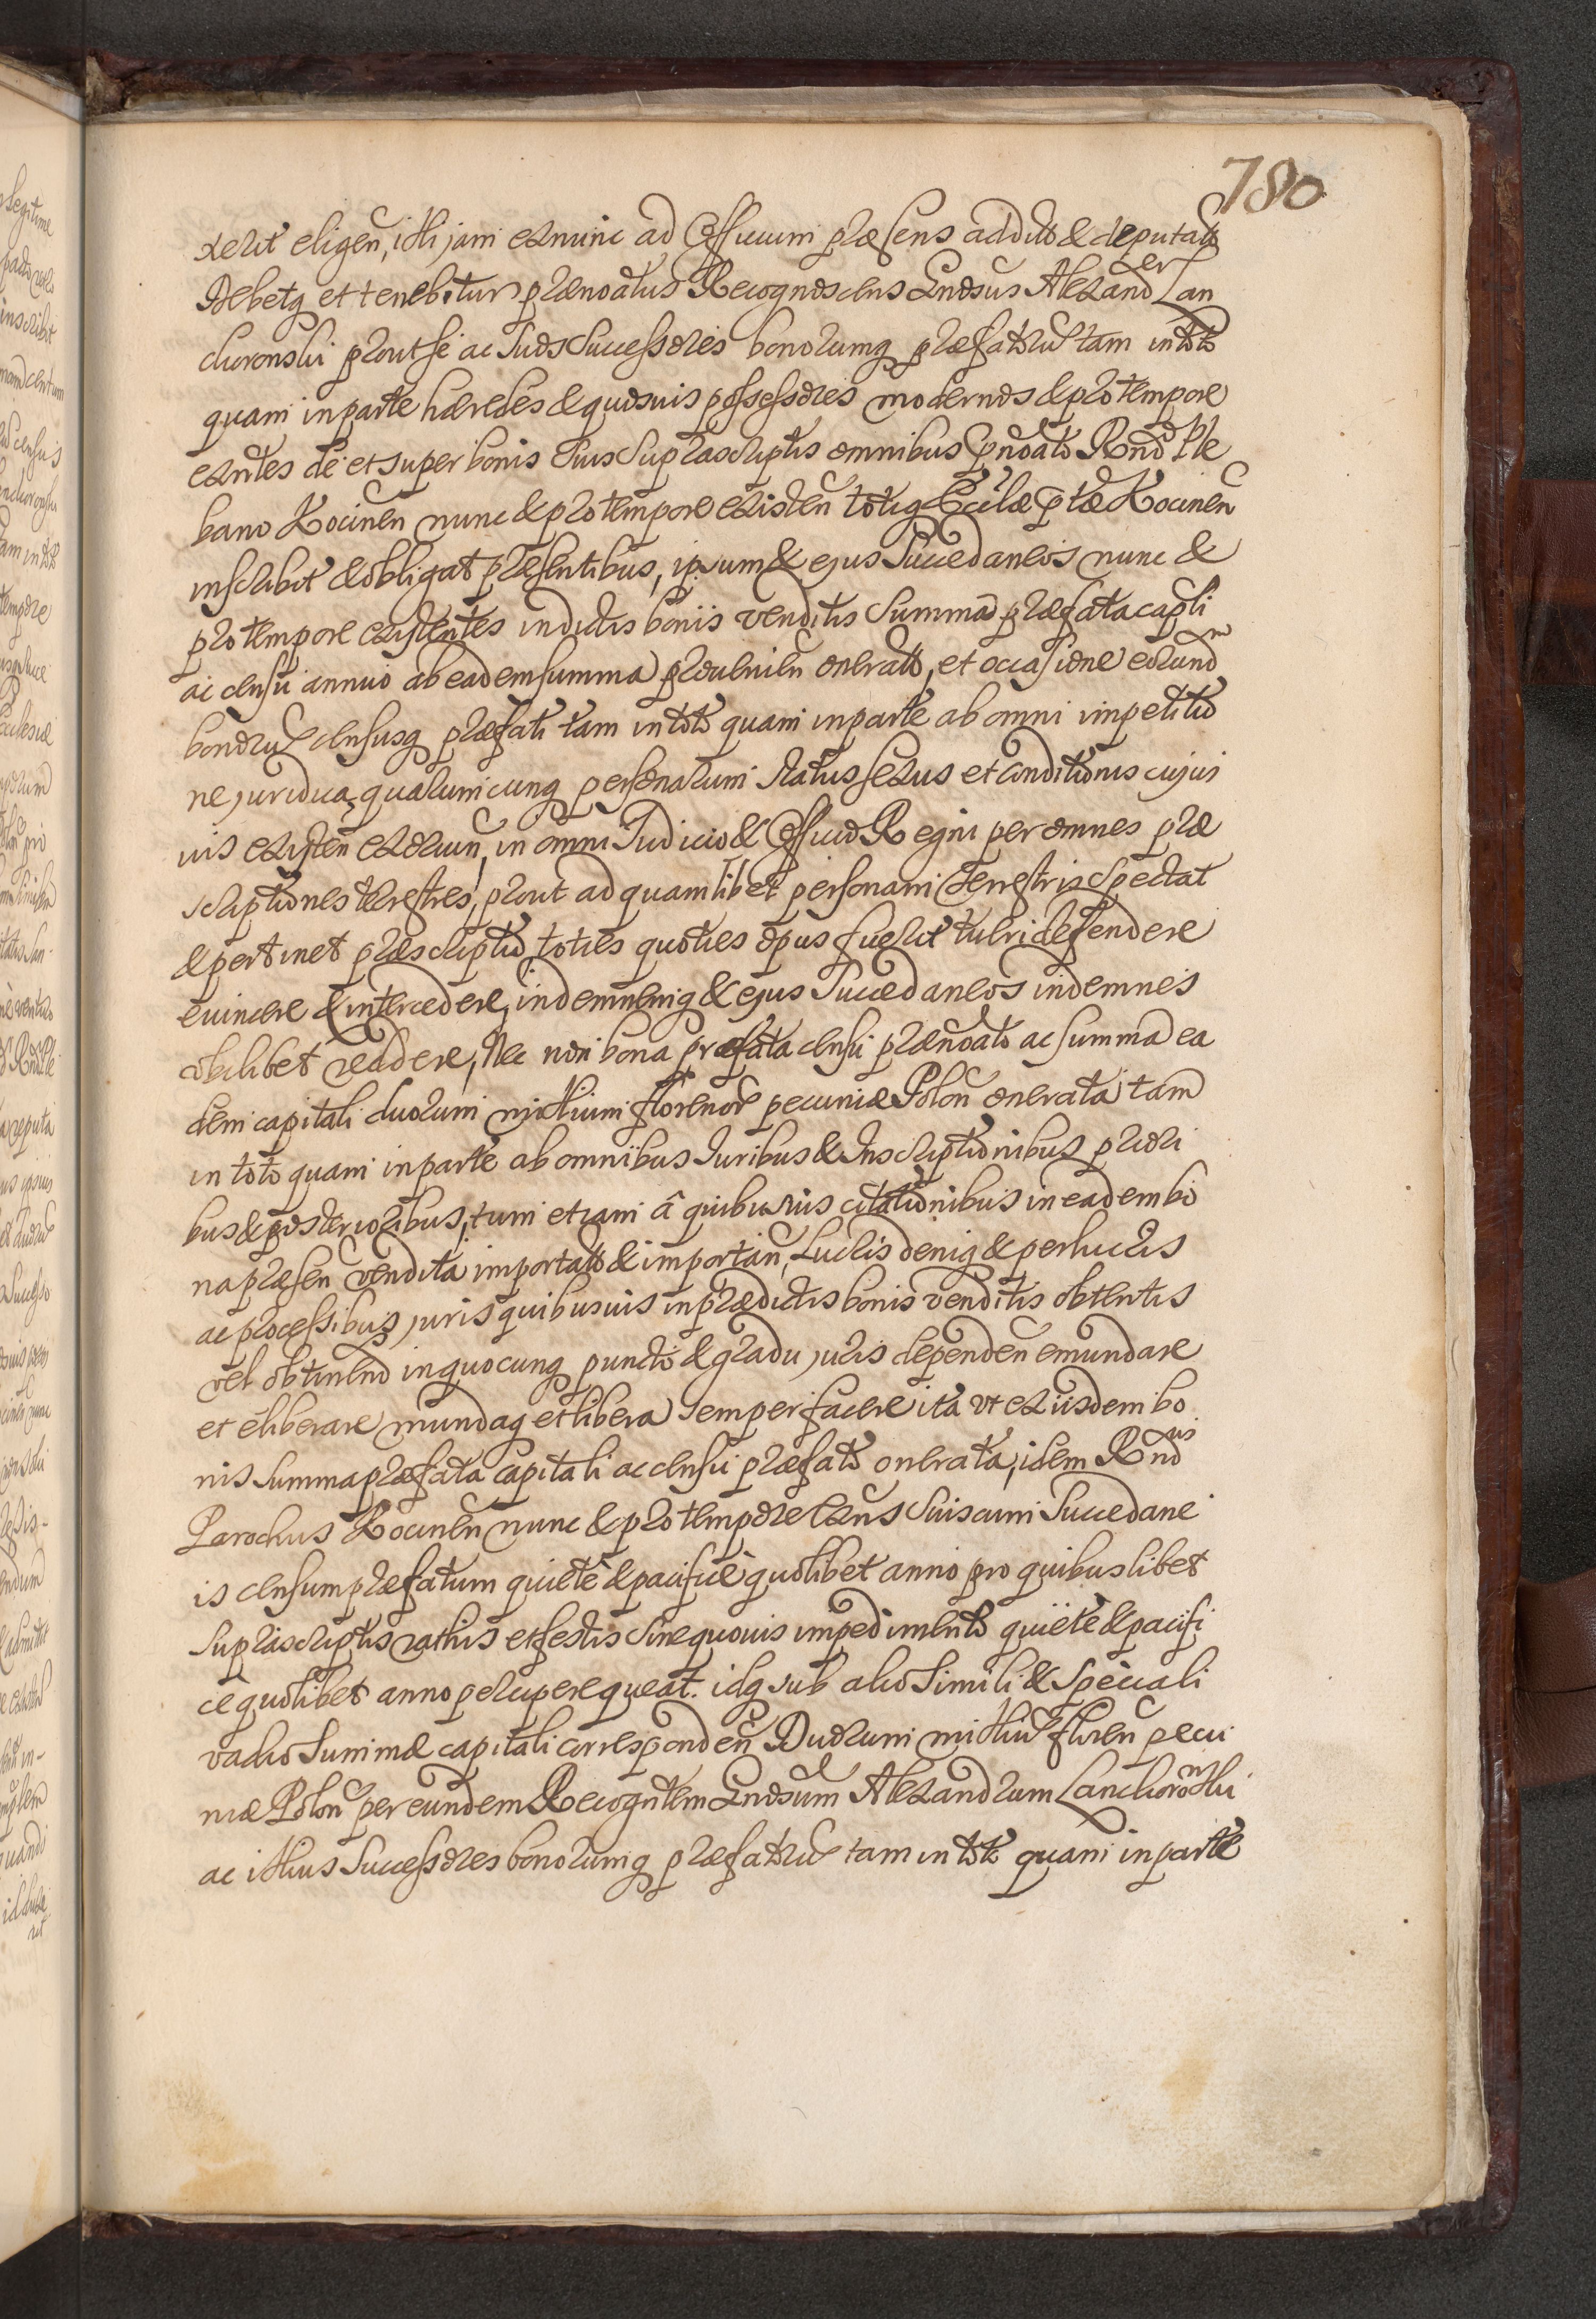 780
xerit eligen, illi jam exnunc ad Officium præsens addito & deputato
Debetq et tenebitur prænoatus Recognoscens Gnosus Alexander Lan
choronski prout se ac suos Successores bonorumq præfatoru tam in toto
quam in parte hæredes & quosuis possessores modernos & pro tempore
exntes de et super bonis suis suprascriptis omnibus pnoato Rndo Ple
bano Kocinen nunc & pro tempore existen totiq Ecclæ ptæ Kocinen
inscribit & obligat præsentibus, ipsum & ejus Succedaneos nunc &
pro tempore existentes in dictis bonis venditis summa præfata capli
ac censu annuo ab eadem summa proueniен onerato, et occasione eorundm
bonoru censusq præfati tam in toto quam in parte ab omni impetitio
ne juridica, quarumcunq personarum status sexus et conditionis cujus
uis existen exorum, in omni Judicio & Officio Regni per omnes præ
scriptiones terrestres, prout ad quamlibet personam terrestris spectat
& pertinet præscriptio, toties quoties opus fuerit tueri defendere
euincere & intercedere, indemnemq & ejus Succedaneos indemnes
obilibet reddere, Nec non bona præfata censu prænoato ac summa ea
dem capitali duorum millium florenor pecuniæ Polon onerata tam
in toto quam in parte ab omnibus Juribus & Inscriptionibus priori
bus & posterioribus, tum etiam â quibusuis citationibus in eadem bo
na præsen vendita importatis & importan, Lucris deniq & perlucris
ac processibus, juris quibusuis in prædictis bonis venditis obtentis
vel obtinend in quocunq puncto & gradu juris dependen emundare
et eliberare mundaq et libera semper facere ita vt ex iisdem bo
nis summa præfata capitali ac censu præfato onerata, idem Rndus
Parochus Kocinen nunc & pro tempore exns suis cum Succedane
is censum præfatum quiete & pacifice quolibet anno pro quibuslibet
suprascriptis rathis et festis sine quouis impedimento quiete & pacifi
ce quolibet anno percipere queat. idq sub alio simili & speciali
vadio summæ capitali corresponden Duorum milliu floren pecu
niæ Polon per eundem Recogntem Gnosum Alexandrum Lanchoronski
ac illius Successores bonorumq præfatoru tam in toto quam in parte